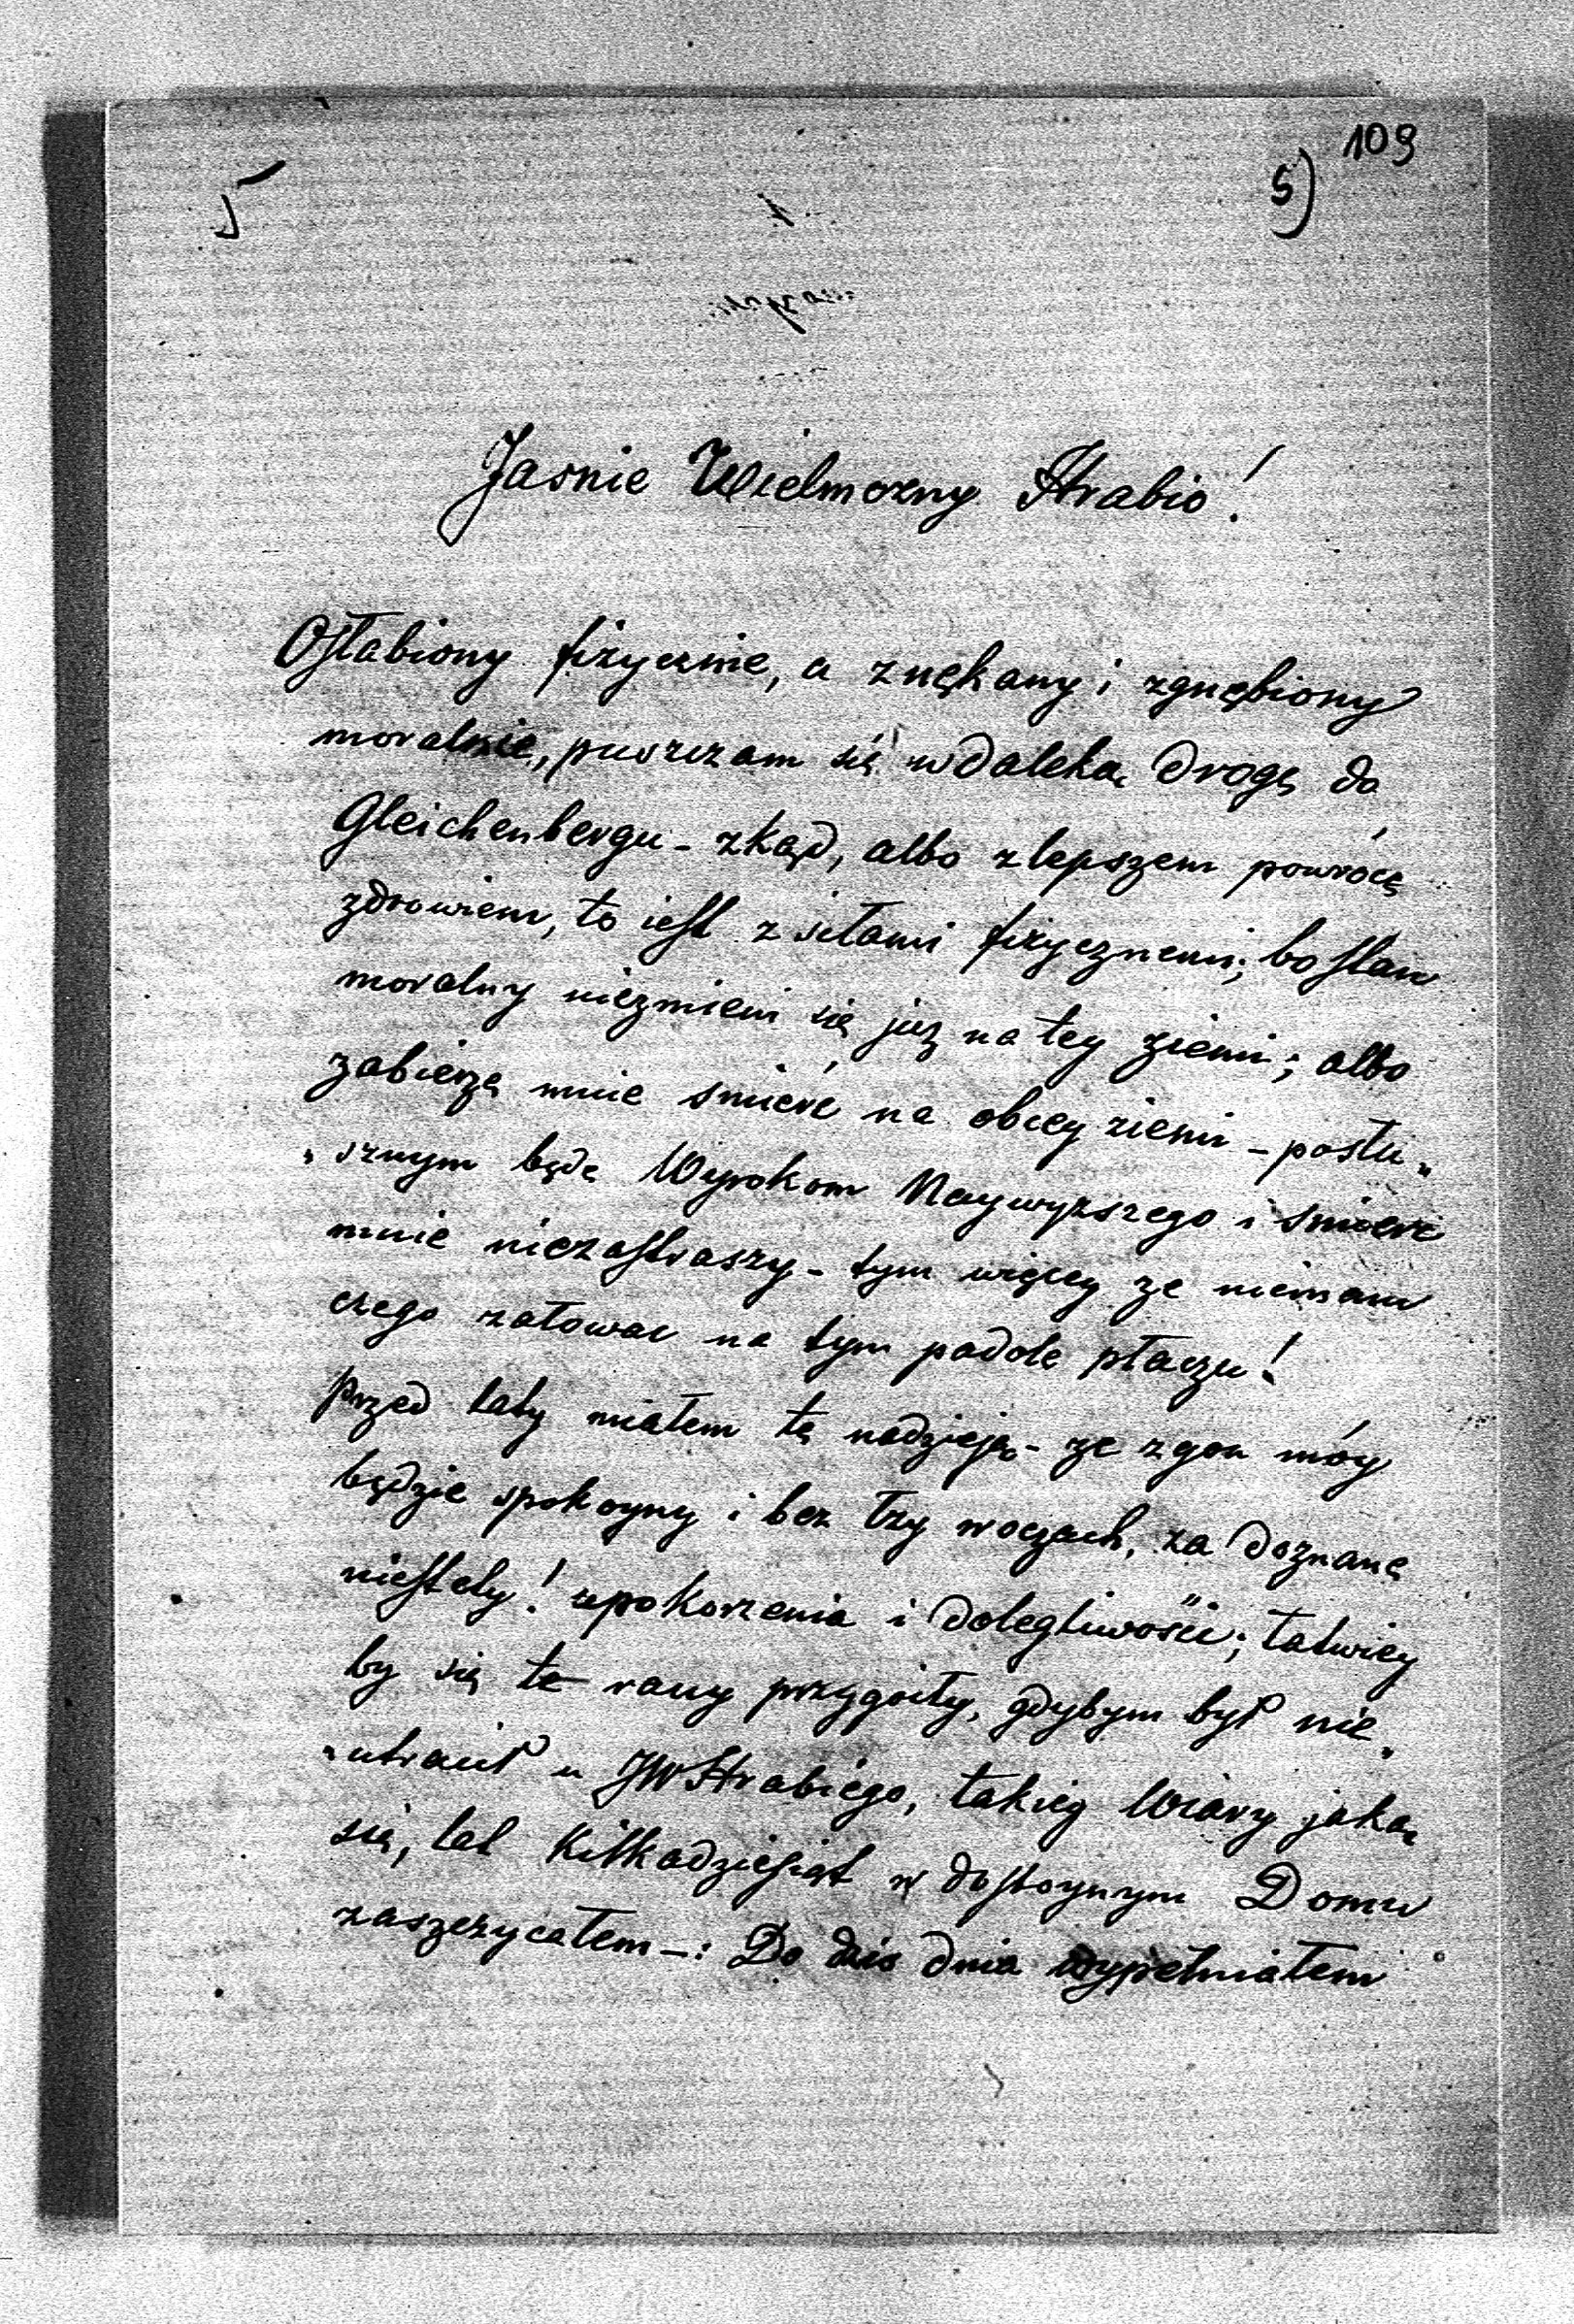 109
5)
Jasnie Wielmozny Hrabio!
Osłabiony fizycznie, a znękany i zgnębiony
moralnie, puszczam się w daleką drogę do
Gleichenbergu - zkąd, albo z lepszem powrócę
zdrowiem, to iest z siłami fizycznemi; bo stan
moralny niezmieni się juz na tey ziemi; albo
zabierze mnie smierć na obcey ziemi - posłu„
„sznym będę Wyrokom Naywyzszego i smierć
mnie niezastraszy - tym więcey ze niemam
czego załowac na tym padole płaczu!
Przed laty miałem tę nadzieję - ze zgon móy
będzie spokoyny i bez łzy w oczach, za doznane
niestety! upokorzenia i dolegliwości; łatwiey
by się te rany przygoiły, gdybym był nie„
„utracił u JWHrabiego, takiey Wiary jaką
się, lat kilkadziesiąt w dostoynym Domu
zaszczycałem -: Do dzis dnia wypełniałem